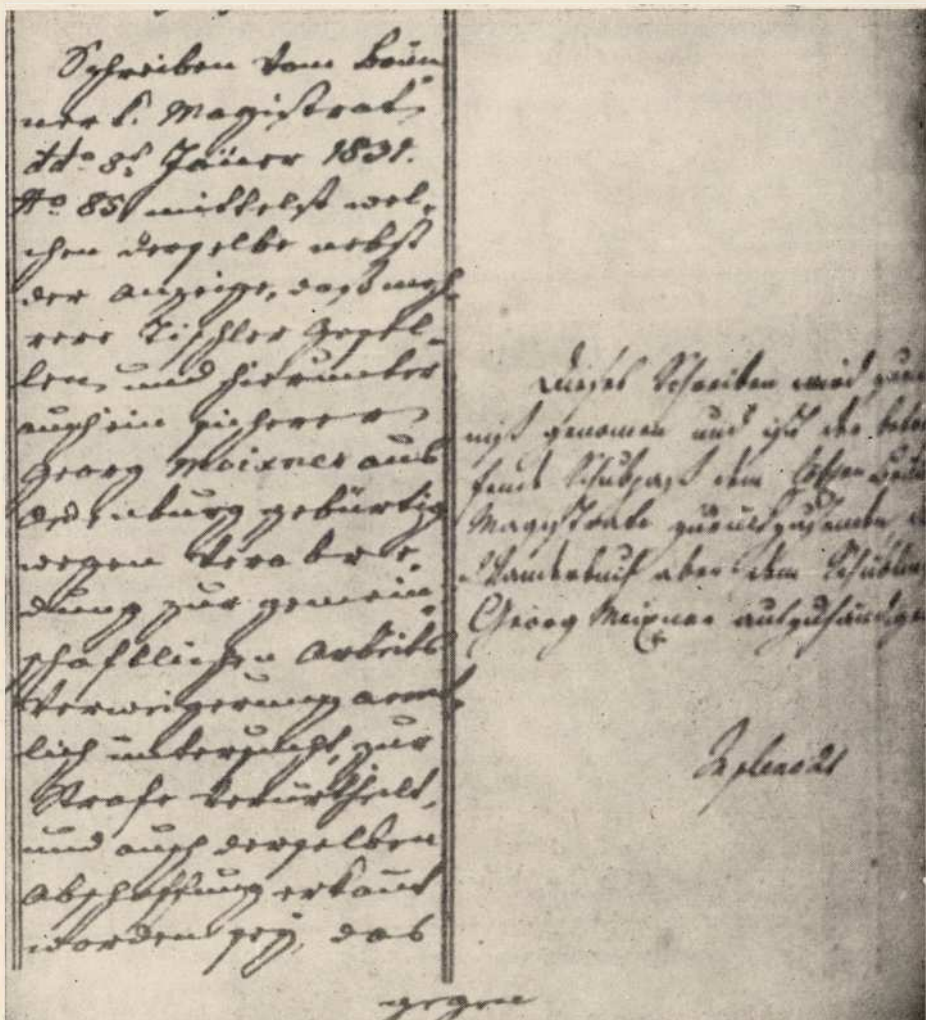 Schreiben vom Brün-
ner k. Magistrat
ddo 8t Jäner 1831.
No 85 mittelst wel-
chen derselbe nebst
der Anzeige, daß meh-
rere Tischler Gesel-
len, und hierunter
auch ein sicherer
Georg Meixner aus
Ödenburg gebürtig
wegen Verabre-
dung zur gemein-
schaftlichen Arbeits
Verweigerung aemt-
lich untersucht, zur
Strafe verurtheilt,
und auch derselben
Abschaffung erkannt
worden sey, das
gegen
Dieses Schreiben wird zur
niß genomen und ist der betre
fende Schubpaß dem
Magistrate zurückzusenden
Wanderbuch aber dem Schübling
Georg Meixner auszuhändigen